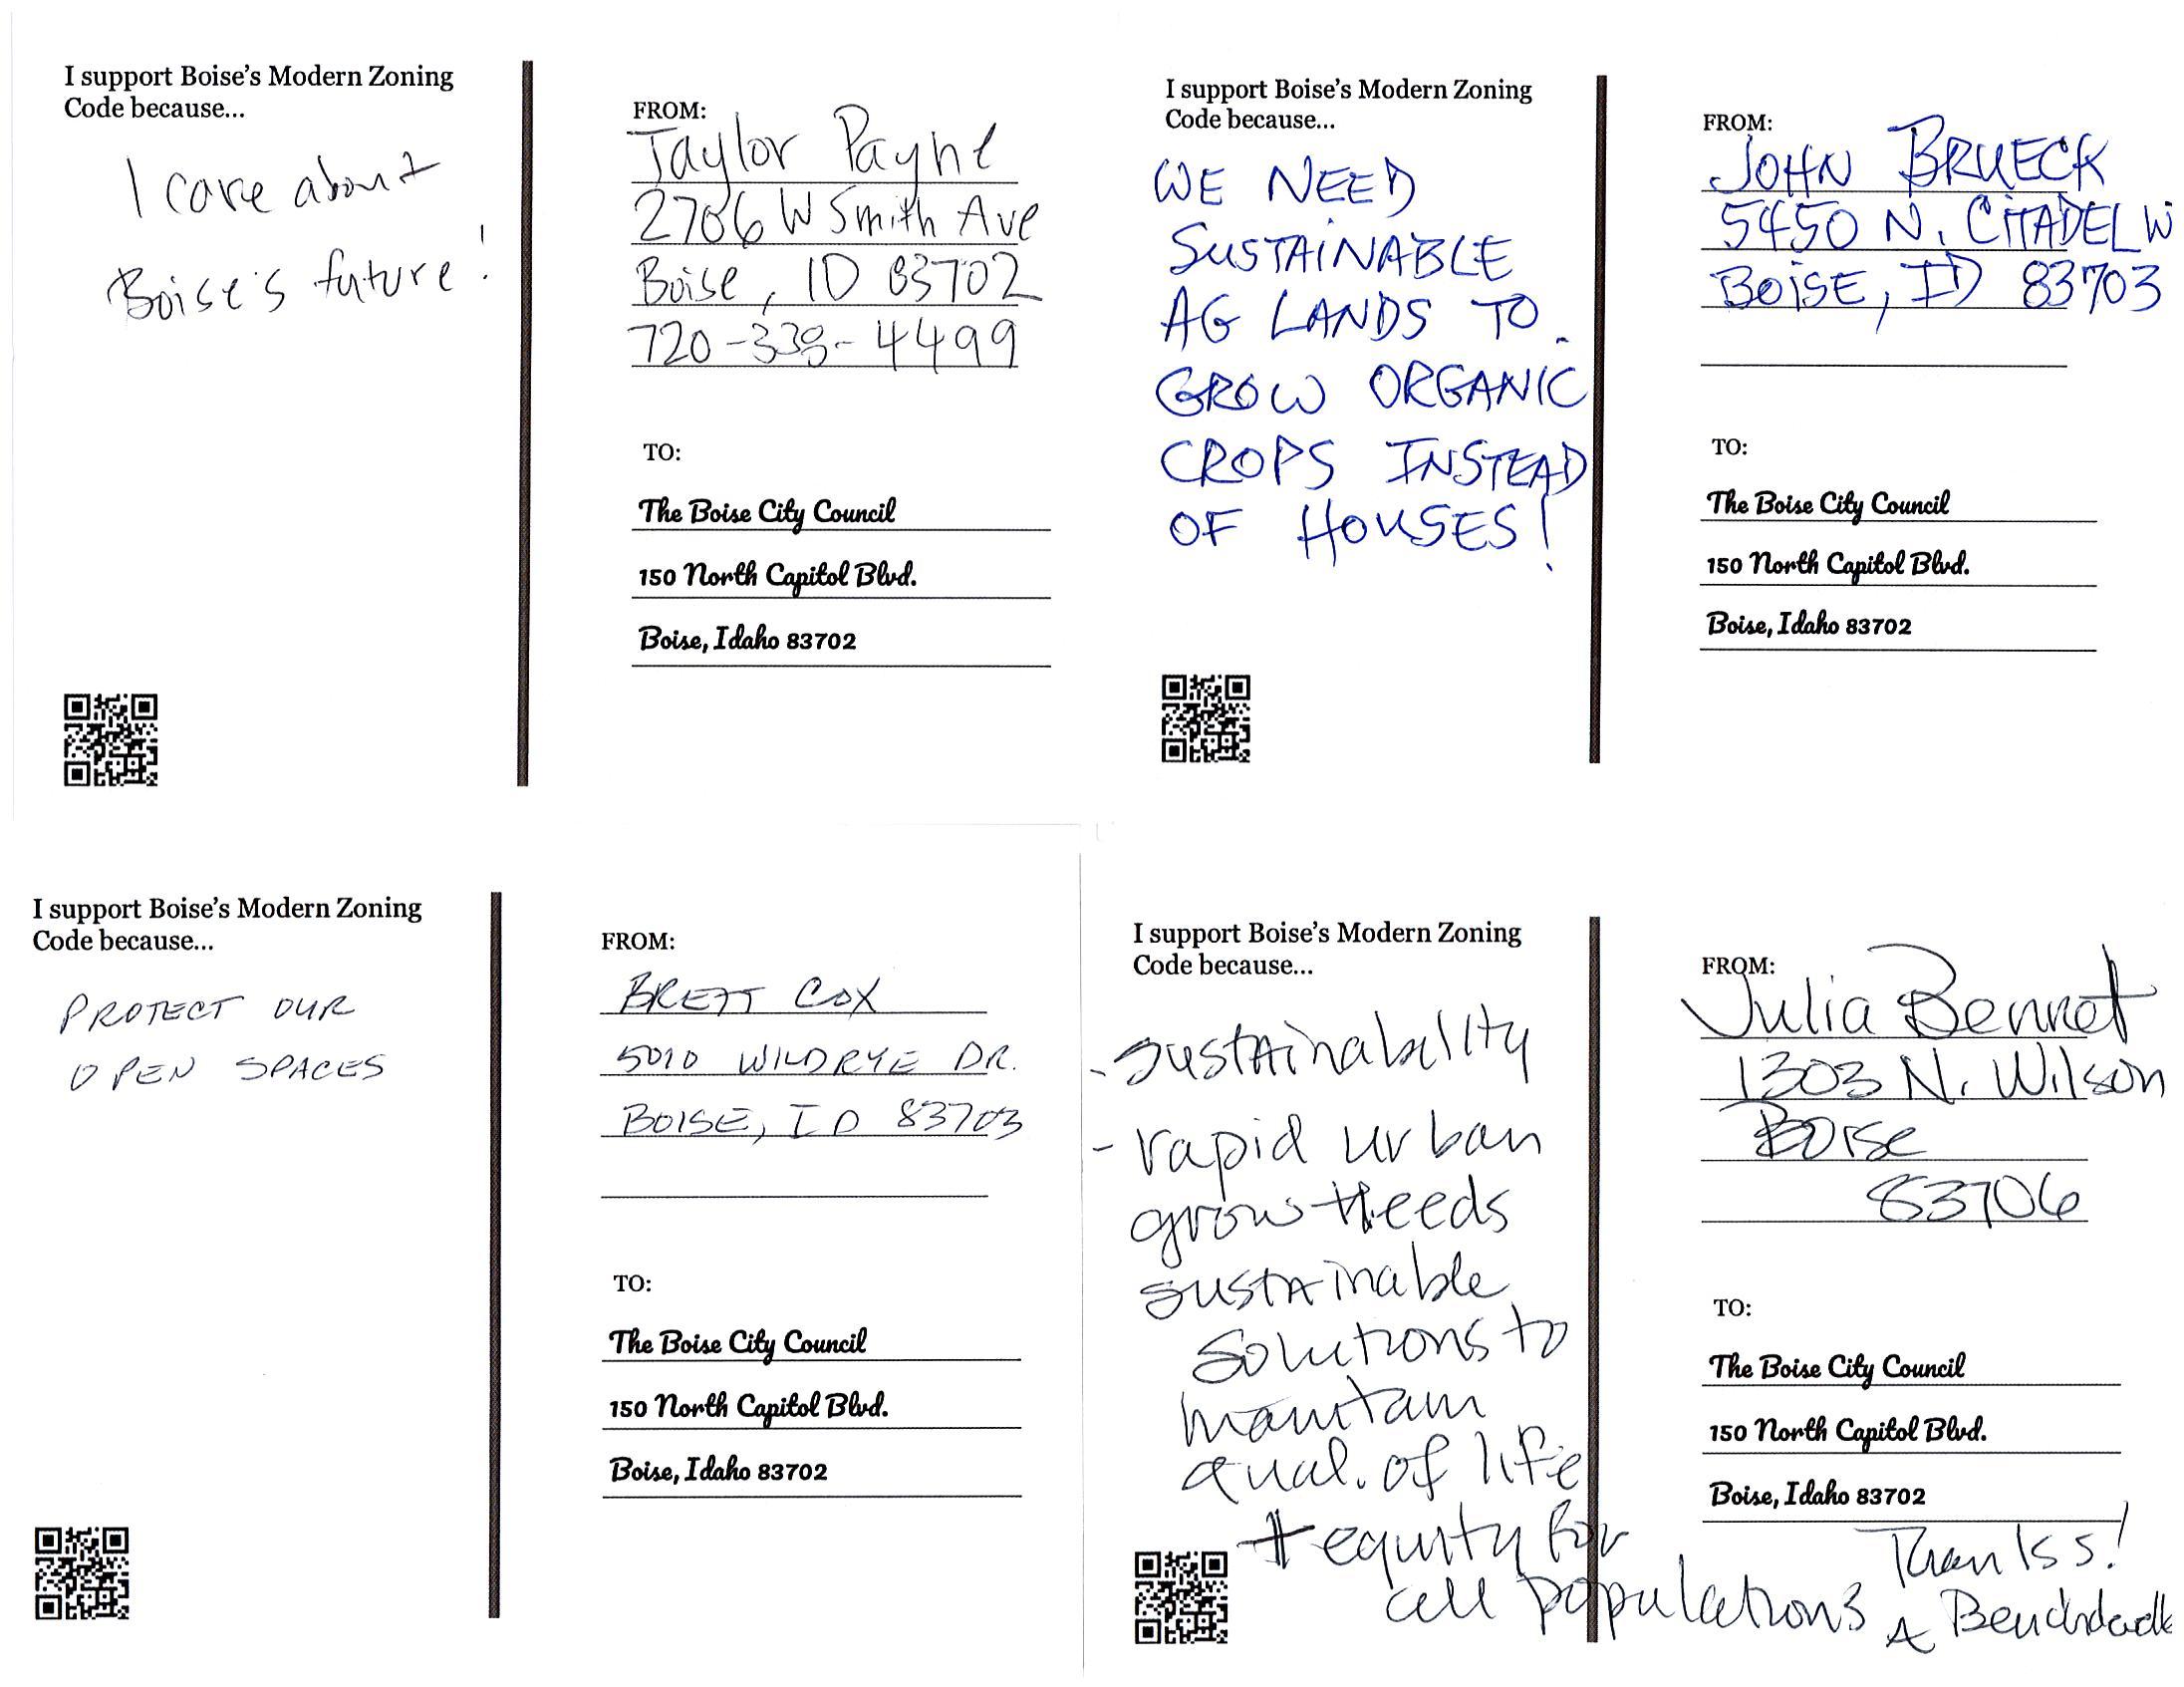 I support Boise's Modern Zoning
Code because...
I care about
Boise's future!
FROM:
Taylor Payne
2706 W Smith Ave
Boise, ID 83702
720-338-4499
TO:
The Boise City Council
150 North Capitol Blvd.
Boise, Idaho 83702
I support Boise's Modern Zoning
Code because...
WE NEED
SUSTAINABLE
AG LANDS TO
GROW ORGANIC
CROPS INSTEAD
OF HOUSES!
FROM:
JOHN BRUECK
5450 N. CITADEL W
BOISE, ID 83703
TO:
The Boise City Council
150 North Capitol Blvd.
Boise, Idaho 83702
I support Boise's Modern Zoning
Code because...
PROTECT OUR
OPEN SPACES
FROM:
BRETT COX
5010 WILDRYE DR.
BOISE, ID 83703
TO:
The Boise City Council
150 North Capitol Blvd.
Boise, Idaho 83702
I support Boise's Modern Zoning
Code because...
- sustainability
- rapid urban
growth needs
sustainable
solutions to
maintain
qual. of life
+ equity for
all populations
FROM:
Julia Bennet
1303 N. Wilson
Boise
83706
TO:
The Boise City Council
150 North Capitol Blvd.
Boise, Idaho 83702
Thanks!
A